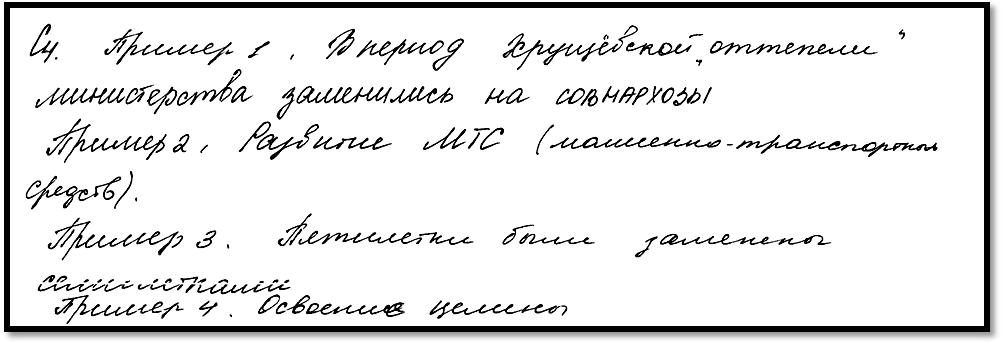 С4. Пример 1. В период Хрущёвской „оттепели“
министерства заменились на совнархозы
Пример 2. Развитие МТС (машенно-транспортных
средств).
Пример 3. Пятилетки были заменены
семилетками
Пример 4. Освоение целины